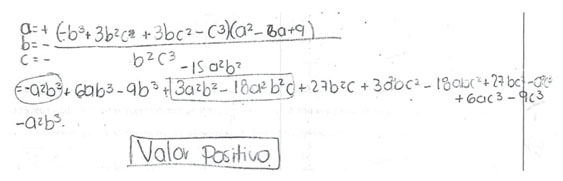 a=+ (-b³+3b²c+3bc²-c³)(a²-6a+9)
b=-
c=- b²c³
-15a²b²
=-a²b³+6ab³-9b³+3a²b²-18a²b²c+27b²c+3abc²-18abc²+27bc²-a²c³
+6ac³-9c³
-a²b³.
Valor Positivo